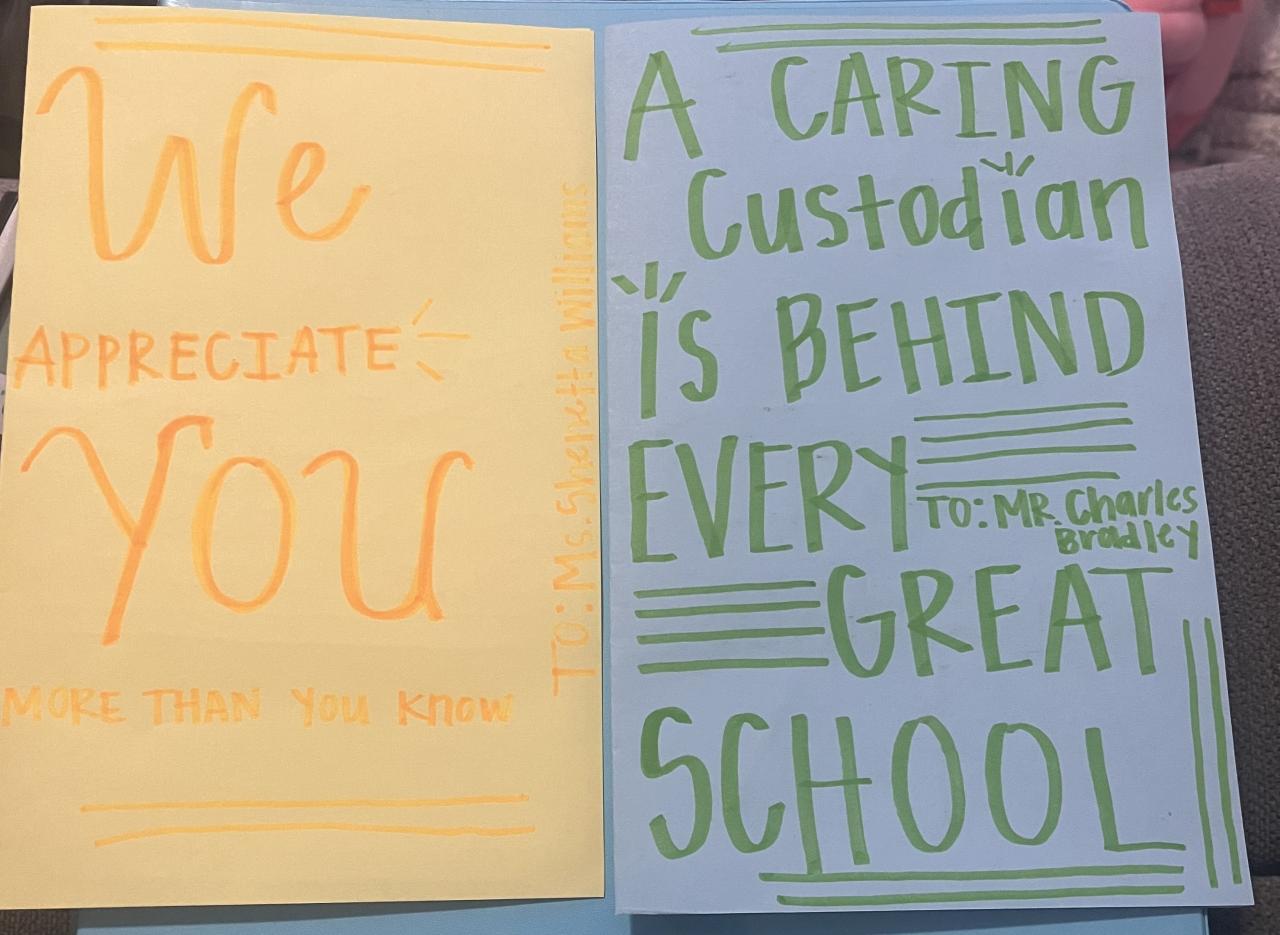 We
APPRECIATE
YOU
MORE THAN YOU KNOW
TO: Ms. Shehetta Williams
A CARING
Custodian
IS BEHIND
EVERY
TO: MR. Charles
Bradley
GREAT
SCHOOL